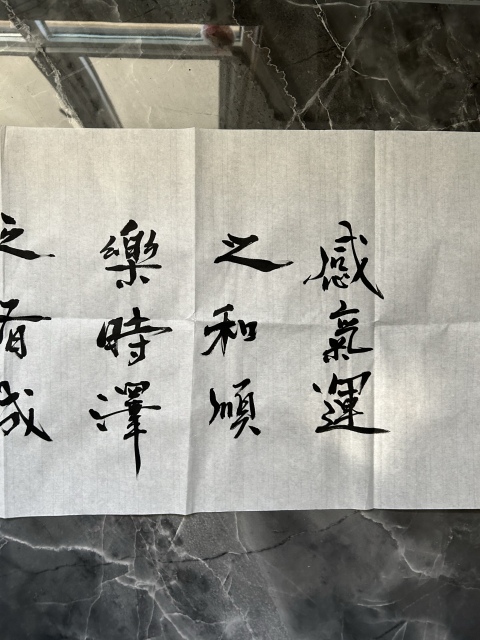 感氣運
之和順
樂時澤
之成